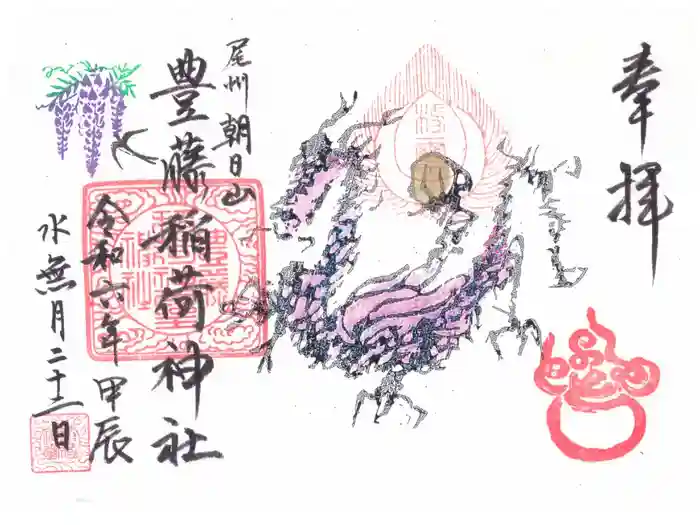 奉拝
尾州朝日山
豊藤稲荷神社
令和六年甲辰
水無月二十一日